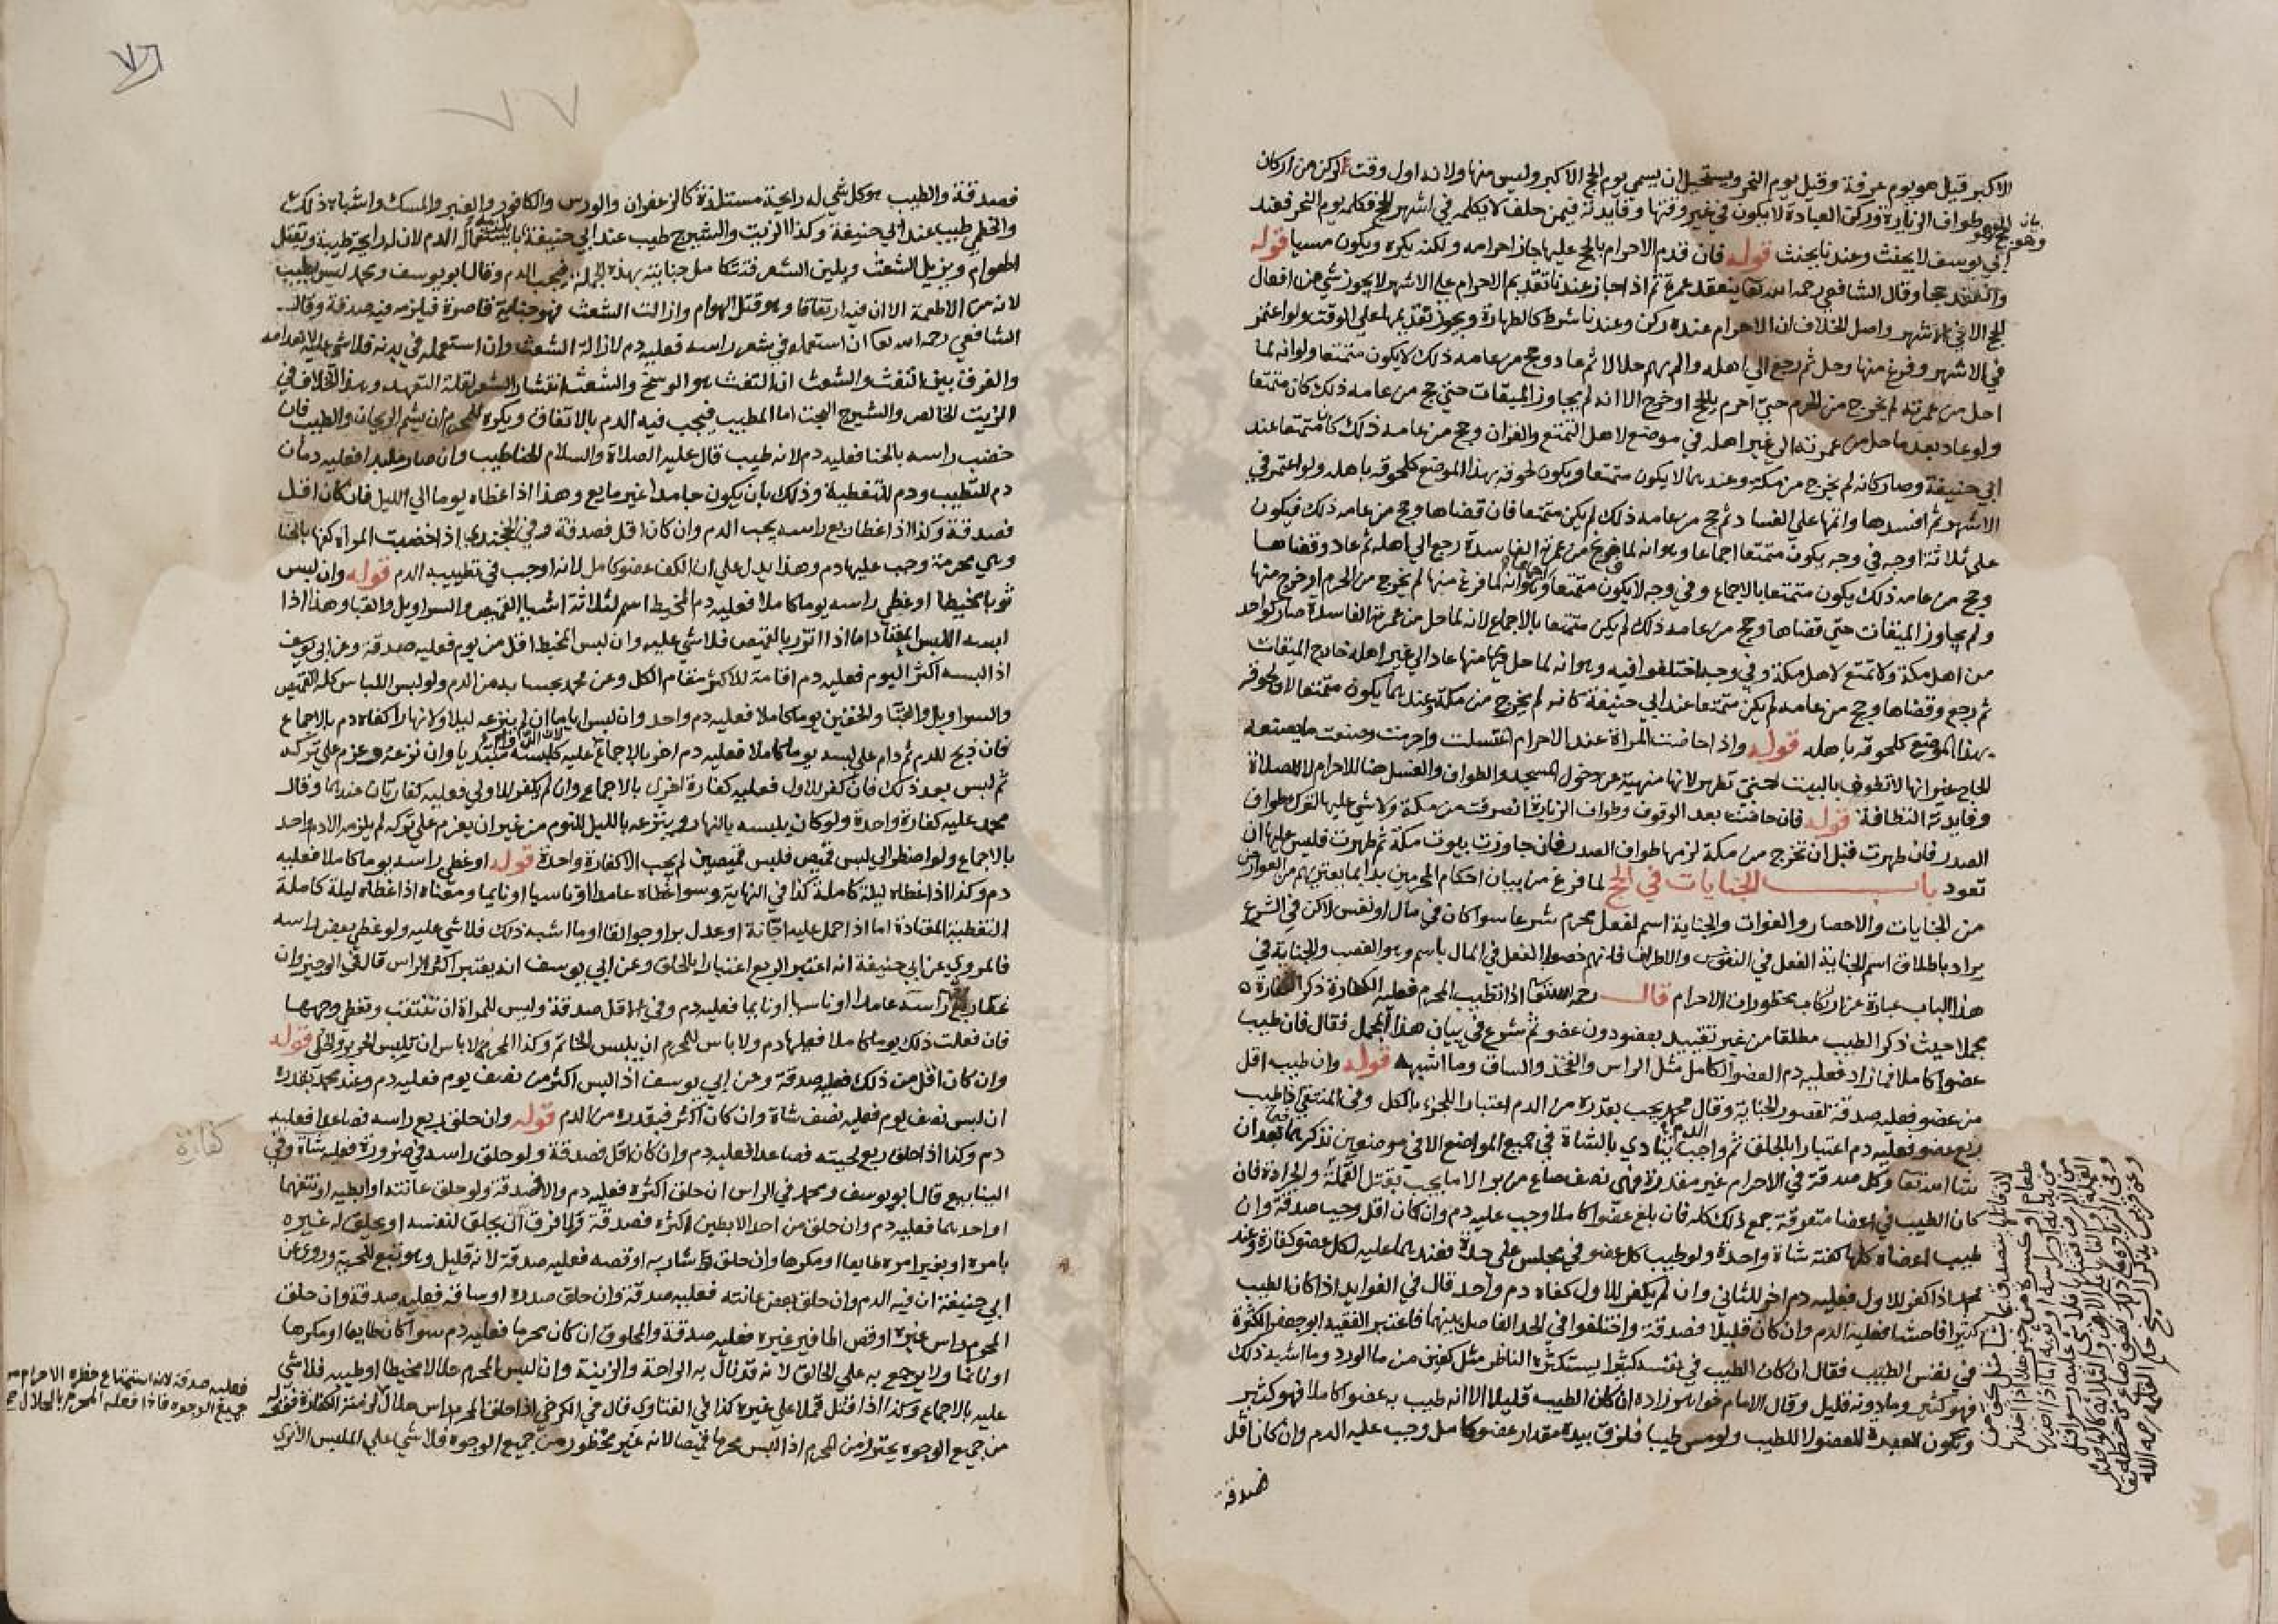 الاكبر قيل هو يوم عرفة وقيل يوم النحر ويستحيل ان يسمي يوم الحج الاكبر وليس منها ولانه اول وقت الركن من اركان
الحج وهو طواف الزيارة وركن العبادة لا يكون في غير وقتها وفايدته فيمن حلف لا يكلمه في اشهر الحج فكلمه يوم النحر فعند
ابي يوسف لا يحنث وعندنا يحنث قوله فان قدم الاحرام بالحج عليها جاز احرامه ولكنه يكره ويكون مسيا قوله
وانعقد حجا وقال الشافعي رحمه الله تعا ينعقد عمرة ثم اذا جاز عندنا تقديم الاحرام على الاشهر لا يجوز شي من افعال
الحج الا في الاشهر واصل الخلاف ان الاحرام عنده ركن وعندنا شرط كالطهارة ويجوز تقديمها علي الوقت ولو اعتمر
في الاشهر وفرغ منها وحل ثم رجع الي اهله والم بهم حلالا ثم عاد وحج من عامه ذلك لا يكون متمتعا ولو انه لما
احل من عمرته لم يخرج من الحرم حتي احرم بالحج او خرج الا انه لم يجاوز الميقات حتي حج من عامه ذلك كان متمتعا
ولو عاد بعد ما حل من عمرته الي غير اهله في موضع لاهل التمتع والقران وحج من عامه ذلك كان متمتعا عند
ابي حنيفة وصار كانه لم يخرج من مكة وعندهما لا يكون متمتعا ويكون لحوقه بهذا الموضع كلحوقه باهله ولو اعتمر في
الاشهر ثم افسدها واتمها علي الفساد ثم حج من عامه ذلك لم يكن متمتعا فان قضاها وحج من عامه ذلك فيكون
علي ثلاثة اوجه في وجه يكون متمتعا اجماعا وهو انه لما خرج من عمرته الفاسدة رجع الي اهله ثم عاد وقضاها
وحج من عامه ذلك يكون متمتعا بالاجماع وفي وجه لا يكون متمتعا وهو انه لما فرغ منها لم يخرج من الحرم او خرج منها
ولم يجاوز الميقات حتي قضاها وحج من عامه ذلك لم يكن متمتعا بالاجماع لانه لما حل من عمرته الفاسدة صار كواحد
من اهل مكة ولا تمتع لاهل مكة وفي وجه اختلفوا فيه وهو انه لما حل منها عاد الي غير اهله خارج الميقات
ثم رجع وقضاها وحج من عامه لم يكن متمتعا عند ابي حنيفة كانه لم يخرج من مكة وعندهما يكون متمتعا لان لحوقه
بهذا الموضع كلحوقه باهله قوله واذا حاضت المراة عند الاحرام اغتسلت واحرمت وصنعت ما يصنعه
الحاج غير انها لا تطوف بالبيت حتي تطهر لانها منهية عن دخول المسجد والطواف والغسل هنا للاحرام لا للصلاة
وفايدته النظافة قوله فان حاضت بعد الوقوف وطواف الزيارة انصرفت من مكة ولا شي عليها لترك طواف
الصدر فان طهرت قبل ان تخرج من مكة لزمها طواف الصدر فان جاوزت بيوت مكة ثم طهرت فليس عليها ان
تعود باب الجنايات في الحج لما فرغ من بيان احكام المحرمين بدا بما يعتريهم من العوارض
من الجنايات والاحصار والفوات والجناية اسم لفعل محرم شرعا سوا كان في مال او نفس لاكن في الشرع
يراد باطلاق اسم الجناية الفعل في النفوس والاطراف فانهم خصوا الفعل في المال باسم وهو الغصب والجناية في
هذا الباب عبارة عن ارتكاب محظورات الاحرام قال رحمه الله تعا اذا تطيب المحرم فعليه الكفارة ذكر الكفارة
مجملا حيث ذكر الطيب مطلقا من غير تقييد بعضو دون عضو ثم شرع في بيان هذا المجمل فقال فان طيب
عضوا كاملا فما زاد فعليه دم العضو الكامل مثل الراس والفخذ والساق وما اشبهه قوله وان طيب اقل
من عضو فعليه صدقة لقصور الجناية وقال محمد يجب بقدره من الدم اعتبارا للجزء بالكل وفي المنتقي اذا طيب
ربع عضو فعليه دم اعتبارا بالحلق ثم واجب الدم يتادي بالشاة في جميع المواضع الا في موضعين نذكرهما فيما بعد ان
شا الله تعا وكل صدقة في الاحرام غير مقدرة فهي نصف صاع من بر الا ما يجب بقتل القملة والجرادة فان
كان الطيب في اعضا متفرقة جمع ذلك كله فان بلغ عضوا كاملا وجب عليه دم وان كان اقل وجب صدقة وان
طيب اعضاه كلها كفته شاة واحدة ولو طيب كل عضو في مجلس علي حدة فعندهما عليه لكل عضو كفارة وعند
محمد اذا كفر للاول فعليه دم اخر للثاني وان لم يكفر للاول كفاه دم واحد قال في الفوايد اذا كان الطيب
كثيرا فاحشا فعليه الدم وان كان قليلا فصدقة واختلفوا في الحد الفاصل بينهما فاعتبر الفقيه ابو جعفر الكثرة
في نفس الطيب فقال ان كان الطيب في نفسه كثيرا يستكثره الناظر مثل كفين من ما الورد وما اشبه ذلك
فهو كثير وما دونه قليل وقال الامام خواهر زاده ان كان الطيب قليلا الا انه طيب به عضوا كاملا فهو كثير
وتكون العبرة للعضو لا للطيب ولو مس طيبا فلزق بيده مقدار عضو كامل وجب عليه الدم وان كان اقل
فصدقة
فصدقة والطيب هو كل شي له رايحة مستلذة كالزعفران والورس والكافور والعنبر والمسك واشباه ذلك
والخطمي طيب عند ابي حنيفة وكذا الزيت والشيرج طيب عند ابي حنيفة يجب باستعماله الدم لان له رايحة طيبة وتقتل
الهوام ويزيل الشعث ويلين الشعر فتتكامل جنايته بهذه الجملة فيجب الدم وقال ابو يوسف ومحمد ليس بطيب
لانه من الاطعمة الا ان فيه ارتفاقا وهو قتل الهوام وازالت الشعث فهو جناية قاصرة فيلزمه فيه صدقة وقال
الشافعي رحمه الله تعا ان استعمله في شعر راسه فعليه دم لازالة الشعث وان استعمله في بدنه فلا شي عليه لانعدامه
والفرق بين التفث والشعث ان التفث هو الوسخ والشعث انتشار الشعر لقلة التعهد وهذا الخلاف في
الزيت الخالص والشيرج البحت اما المطيب فيجب فيه الدم بالاتفاق ويكره للمحرم ان يشم الريحان والطيب فان
خضب راسه بالحنا فعليه دم لانه طيب قال عليه الصلاة والسلام الحنا طيب وان صار ملبدا فعليه دمان
دم للتطيب ودم للتغطية وذلك بان يكون جامدا غير مايع وهذا اذا غطاه يوما الي الليل فان كان اقل
فصدقة وكذا اذا غطا ربع راسه يجب الدم وان كان اقل فصدقة وفي الخجندي اذا خضبت المراة كفها بالحنا
وهي محرمة وجب عليها دم وهذا يدل علي ان الكف عضو كامل لانه اوجب في تطييبه الدم قوله وان لبس
ثوبا مخيطا او غطي راسه يوما كاملا فعليه دم المخيط اسم لثلاثة اشيا القميص والسراويل والقبا وهذا اذا
لبسه اللبس المعتاد اما اذا اتزر بالقميص فلا شي عليه وان لبس المخيط اقل من يوم فعليه صدقة وعن ابي يوسف
اذا لبسه اكثر اليوم فعليه دم اقامة للاكثر مقام الكل وعن محمد بحسابه من الدم ولو لبس اللباس كله القميص
والسراويل والقبا والخفين يوما كاملا فعليه دم واحد وان لبس اياما ان لم ينزعه ليلا ولا نهارا كفاه دم بالاجماع
فان ذبح للدم ثم دام علي لبسه يوما كاملا فعليه دم اخر بالاجماع وان نزعه وعزم علي تركه
ثم لبس بعد ذلك فان كفر للاول فعليه كفارة اخري بالاجماع وان لم يكفر للاولي فعليه كفارتان عندهما وقال
محمد عليه كفارة واحدة ولو كان يلبسه بالنهار وينزعه بالليل للنوم من غير ان يعزم علي تركه لم يلزمه الا دم واحد
بالاجماع ولو اضطر الي لبس قميص فلبس قميصين لم يجب الا كفارة واحدة قوله او غطي راسه يوما كاملا فعليه
دم وكذا اذا غطاه ليلة كاملة كذا في النهاية وسوا غطاه عامدا او ناسيا او نايما ومعناه اذا غطاه ليلة كاملة
التغطية المعتادة اما اذا حمل عليه اجانة او عدل بر او جوالقا او ما اشبه ذلك فلا شي عليه ولو غطي بعض راسه
فالمروي عن ابي حنيفة انه اعتبر الربع اعتبارا بالحلق وعن ابي يوسف انه يعتبر اكثر الراس قال في الوجيز وان
غطا ربع راسه عامدا او ناسيا او نايما فعليه دم وفي الاقل صدقة وليس للمراة ان تنتقب وتغطي وجهها
فان فعلت ذلك يوما كاملا فعليها دم ولا باس للمحرم ان يلبس الخاتم وكذا المحرمة لا باس ان تلبس الحرير والحلي قوله
وان كان اقل من ذلك فعليه صدقة وعن ابي يوسف اذا لبس اكثر من نصف يوم فعليه دم وعند محمد بقدره
ان لبس نصف يوم فعليه نصف شاة وان كان اكثر فبقدره من الدم قوله وان حلق ربع راسه فصاعدا فعليه
دم وكذا اذا حلق ربع لحيته فصاعدا فعليه دم وان كان اقل فصدقة ولو حلق راسه في ضرورة فعليه شاة وفي
الينابيع قال ابو يوسف ومحمد في الراس ان حلق اكثره فعليه دم والا فصدقة ولو حلق عانته او ابطيه او نتفهما
او احدهما فعليه دم وان حلق من احد الابطين اكثره فصدقة ولا فرق ان يحلق لنفسه او يحلق له غيره
بامره او بغير امره طايعا او مكرها وان حلق شاربه او قصه فعليه صدقة لانه قليل وهو تبع للحية وروي عن
ابي حنيفة ان فيه الدم وان حلق بعض عانته فعليه صدقة وان حلق صدره او ساقه فعليه صدقة وان حلق
المحرم راس غيره او قص اظافير غيره فعليه صدقة والمحلوق ان كان محرما فعليه دم سوا كان طايعا او مكرها
او نايما ولا يرجع به علي الحالق لانه قد نال به الراحة والزينة وان لبس المحرم حلالا مخيطا او طيبه فلا شي
عليه بالاجماع وكذا اذا قتل قملا علي غيره كذا في الفتاوي قال في الكرخي اذا حلق المحرم راس حلال
من جميع الوجوه يحترز من المحرم اذا لبس محرما قميصا لانه غير محظور من جميع الوجوه فلا شي علي الملبس
فعليه صدقة لانه استمتاع حظره الاحرام من
جميع الوجوه فاذا فعله المحرم بالحلال
كفارة